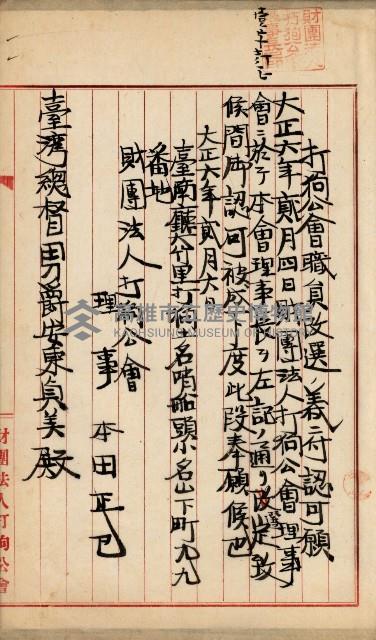 打狗公會職員改選ノ義ニ付認可願
大正六年貳月四日財團法人打狗公會理事
會ニ於テ本會理事長ヲ左記ノ通リ選定致
候間御認可被成下度此段奉願候也
大正六年貳月六
臺南廳大竹里打狗土名哨船頭小名山下町九九
番地
財團法人打狗公會
理事 本田正已
臺灣總督男爵安東貞美殿
財團法人打狗公會
高雄市立歷史博物館
KAOHSIUNG MUSEUM OF HISTORY